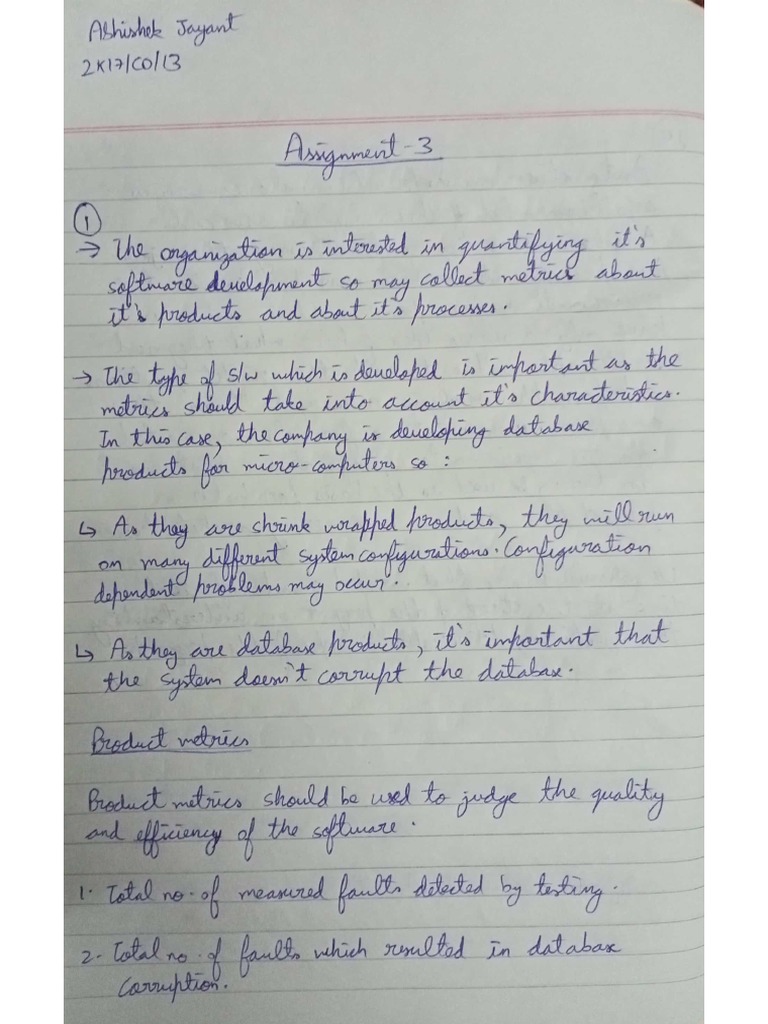 Abhishek Jayant
2K17/CO/13
Assignment-3
①
→ The organization is interested in quantifying it's
software development so may collect metrics about
it's products and about it's processes.
→ The type of S/W which is developed is important as the
metrics should take into account it's characteristics.
In this case, the company is developing database
products for micro-computers so :
↳ As they are shrink wrapped products, they will run
on many different system configurations. Configuration
dependent problems may occur.
↳ As they are database products, it's important that
the system doesn't corrupt the database.
Product metrics
Product metrics should be used to judge the quality
and efficiency of the software.
1. Total no. of measured faults detected by testing.
2. Total no. of faults which resulted in database
corruption.